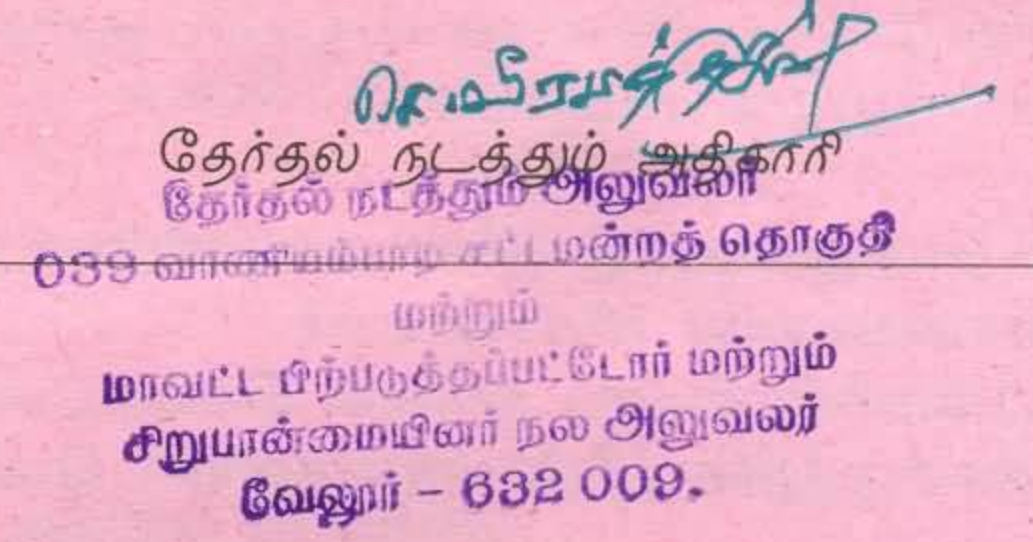 தேர்தல் நடத்தும் அதிகாரி
தேர்தல் நடத்தும் அலுவலர்
039 வாணியம்பாடி சட்டமன்றத் தொகுதி
மற்றும்
மாவட்ட பிற்படுத்தப்பட்டோர் மற்றும்
சிறுபான்மையினர் நல அலுவலர்
வேலூர் - 632 009.